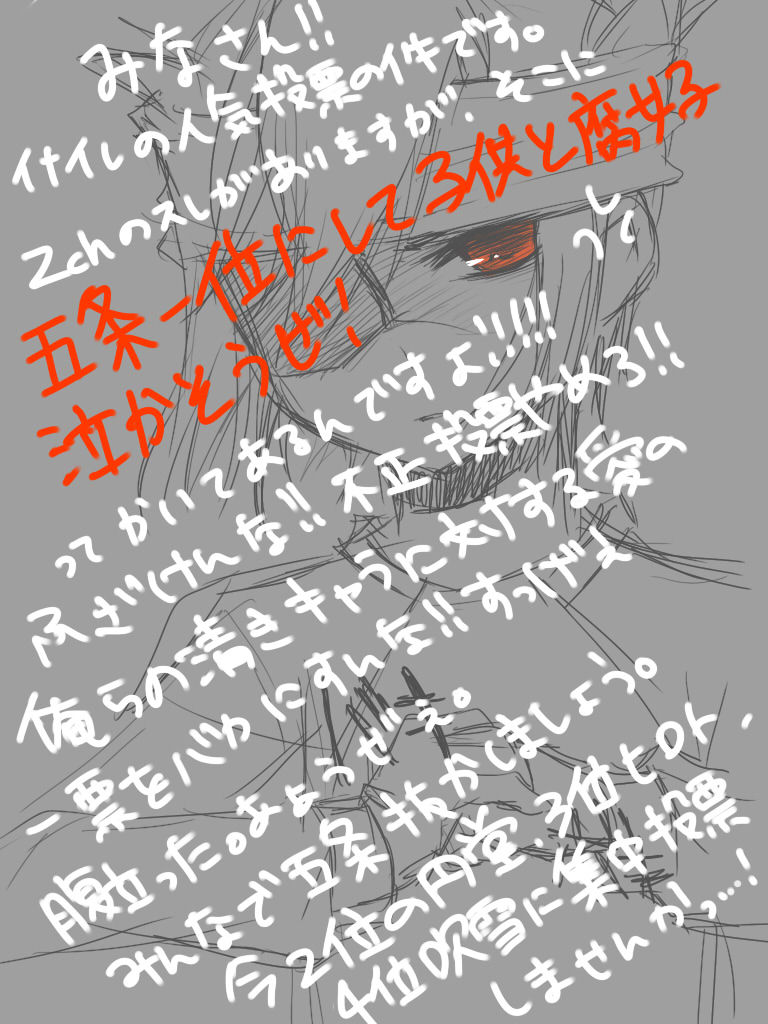 みなさん!!
イナイレの人気投票の件です。
2chのスレがありますが、そこに
五条一位にして子供と腐女子
泣かそうぜ!
ってかいてあるんですよ!!!!!
ふざけんな!! 不正投票やめろ!!
俺らの清きキャラに対する愛の
一票をバカにすんな!! すっげぇ
腹立った。あようぜぇ。
みんなで五条抜かしましょう。
今2位の円堂、3位ヒロト、
4位吹雪に集中投票
しませんかっ…!